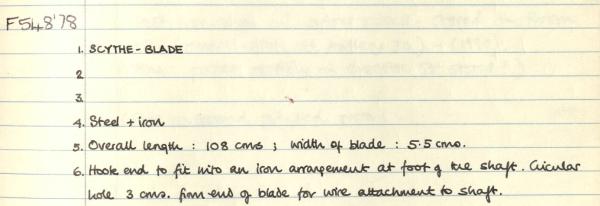 F548'78
1. SCYTHE-BLADE
2
3.
4. Steel + iron
5. Overall length : 108 cms ; width of blade : 5.5 cms.
6. Hook end to fit into an iron arrangement at foot of the shaft. Circular
hole 3 cms. from end of blade for wire attachment to shaft.